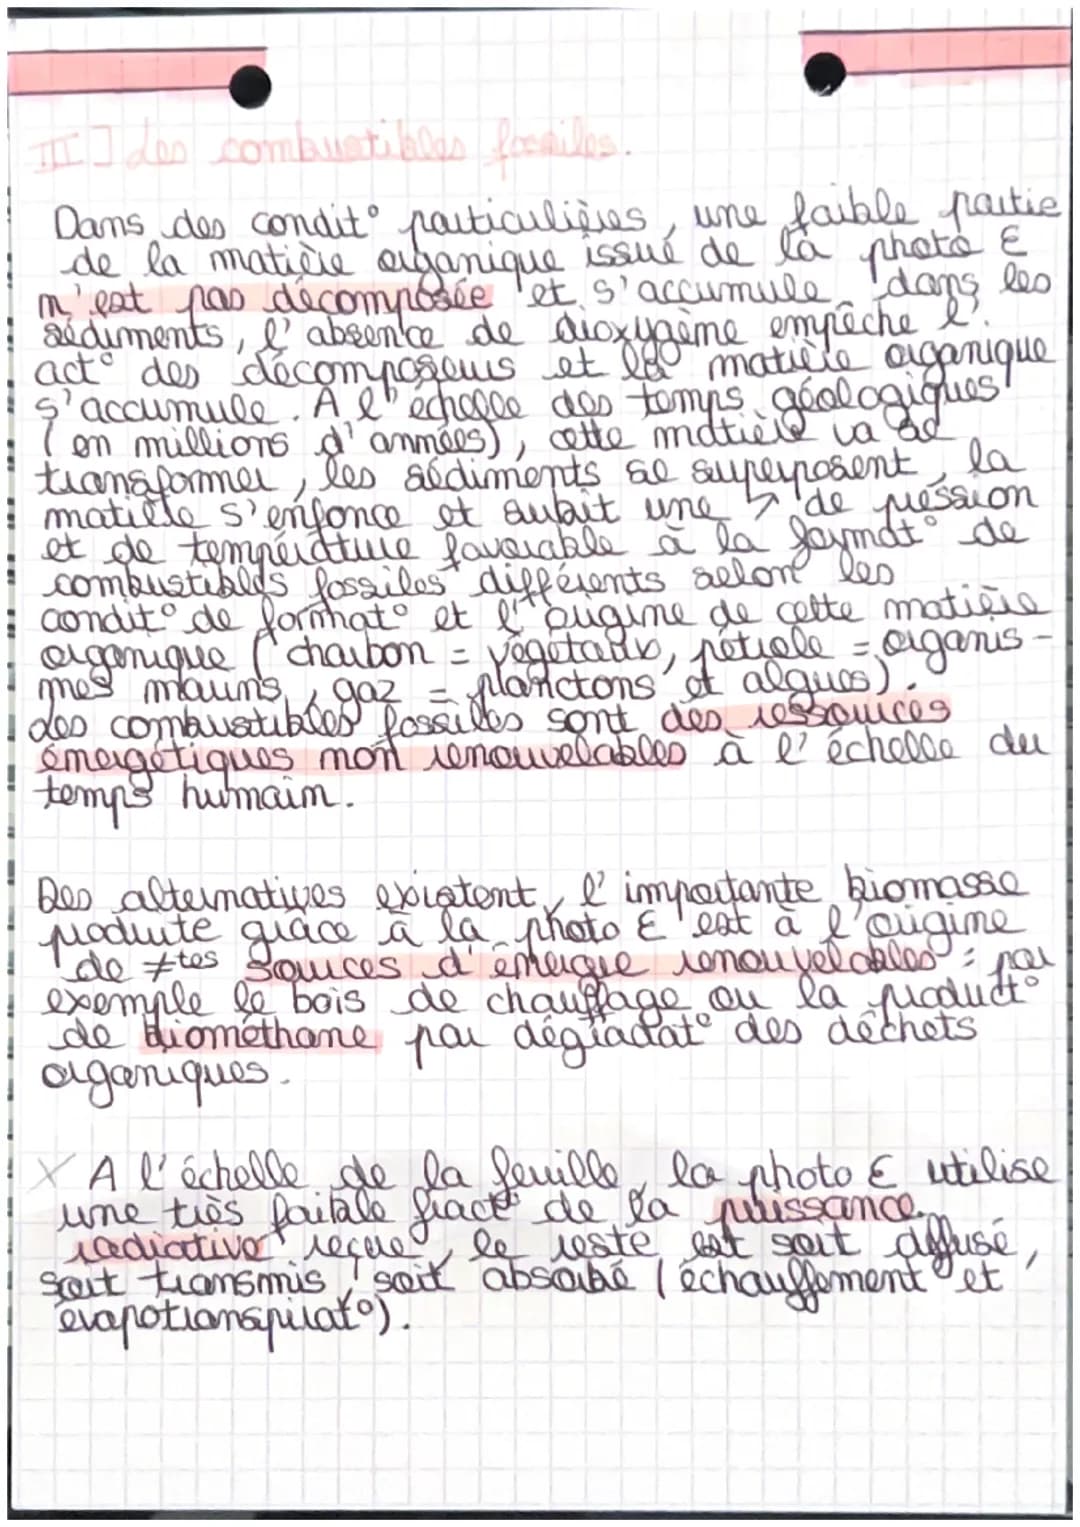 III] Les combustibles fossiles.
Dans des condit° particulières, une faible partie
de la matière organique issue de la photo Ɛ
n'est pas décomposée et s'accumule dans les
sédiments, l'absence de dioxygème empêche l'
act° des décomposeurs et la matière organique
s'accumule. A l'échelle des temps géologiques
(en millions d'années), cette matière va se
transformer, les sédiments se superposent, la
matière s'enfonce et subit une ↗ de préssion
et de température favorable à la format° de
combustibles fossiles différents selon les
condit° de format° et l'origine de cette matière
organique (charbon = végétaux, pétrole = organis-
mes marins, gaz = planctons et algues).
Les combustibles fossiles sont des ressources
énergétiques non renouvelables à l'échelle du
temps humain.
Des alternatives existent, l'importante biomasse
produite grâce à la photo Ɛ est à l'origine
de ≠tes sources d'énergie renouvelables : par
exemple le bois de chauffage ou la product°
de biométhane par dégradat° des déchets
organiques.
X A l'échelle de la feuille, la photo Ɛ utilise
une très faible fract° de la puissance
radiative reçue, le reste est soit diffusé,
soit transmis, soit absorbé (échauffement et
évapotranspirat°).